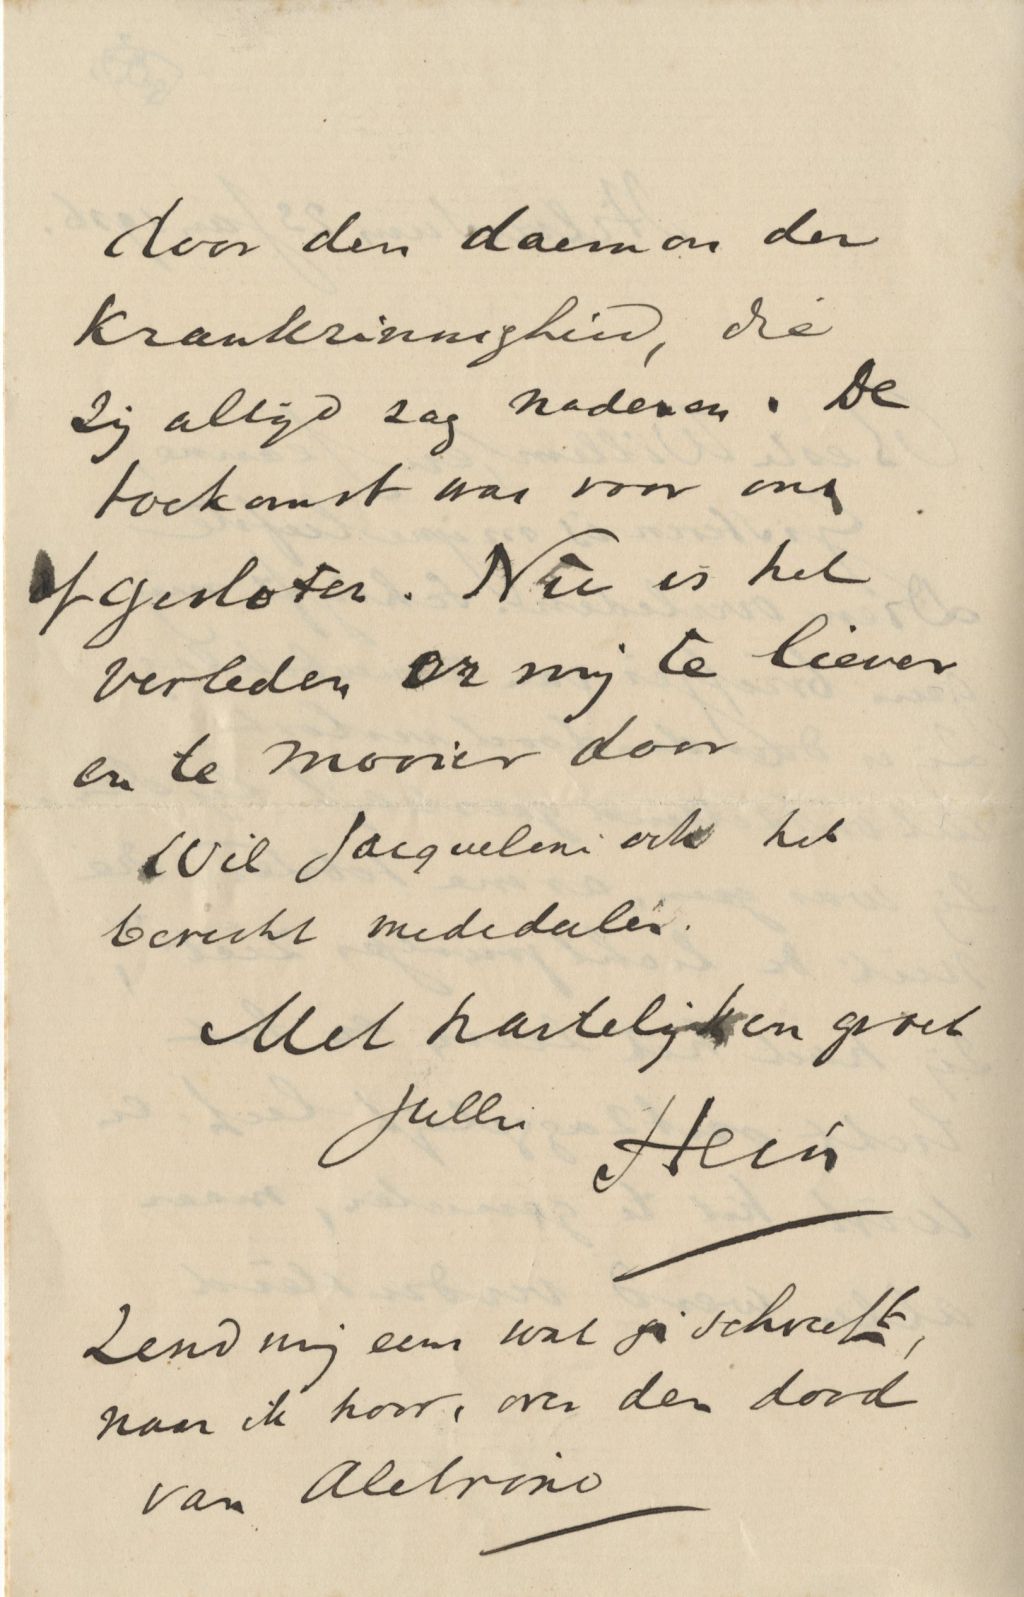 door den daemon der
Krankzinnigheid, die
zij altijd zag naderen. De
toekomst was voor ons
afgesloten. Nu is het
verleden er mij te liever
en te mooier door
Wil Jacqueline ook het
bericht mededeelen.
Met hartelijken groet
Jullie Hein
Zend mij eens wat gi schreeft,
naar ik hoor, over den dood
van Aletrino